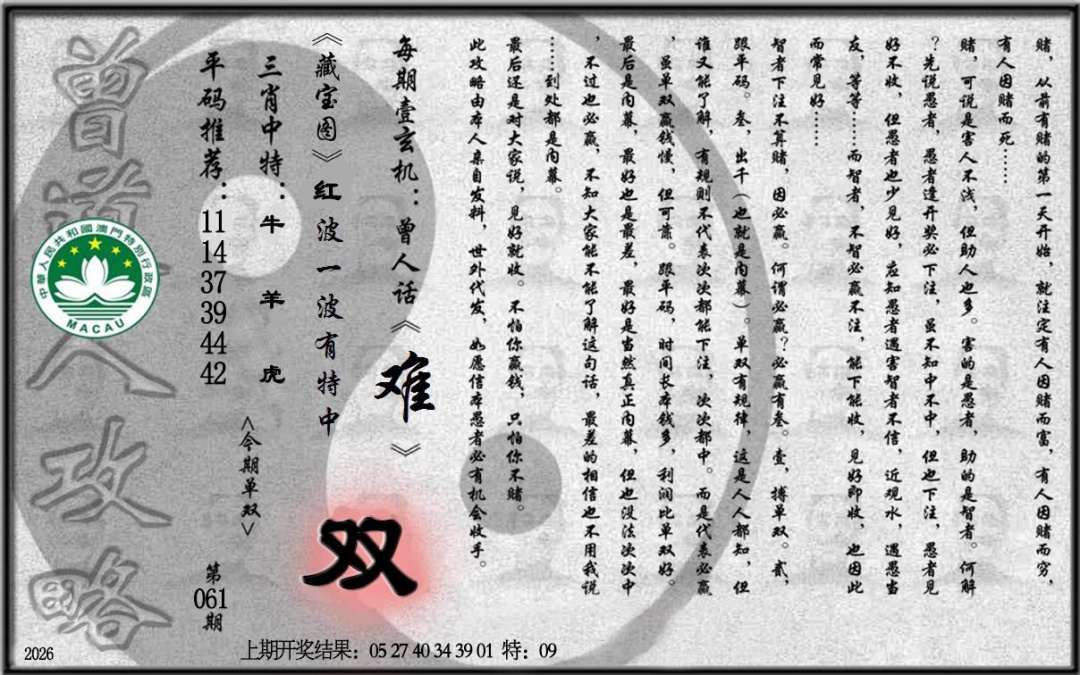 赌，从前有赌的第一天开始，就注定有人因赌而富，有人因赌而穷，
有人因赌而死……
赌，可说是害人不浅，但助人也多。害的是愚者，助的是智者。何解
？先说愚者，愚者逢开奖必下注，虽不知中不中，但也下注，愚者见
好不收，但愚者也少见好，应知愚者遇害智者不信，近观水，遇愚当
友，等等……而智者，不智必赢不注，能下能收，见好即收，也因此
而常见好……
智者下注不算赌，因必赢。何谓必赢？必赢有叁。壹，搏单双。贰，
跟平码。叁，出千（也就是内幕）。单双有规律，这是人人都知，但
谁又能了解，有规则不代表次次都能下注，次次都中。而是代表必赢
，虽单双赢钱慢，但可靠。跟平码，时间长本钱多，利润比单双好。
最后是内幕，最好也是最差，最好是当然真正内幕，但也没法次次中
，不过也必赢，不知大家能不能了解这句话，最差的相信也不用我说
……到处都是内幕。
最后还是对大家说，见好就收。不怕你赢钱，只怕你不赌。
此攻略由本人亲自发料，世外代发，如愿信本愚者必有机会收手。
每期壹玄机：曾人话《难》
《藏宝图》红波一波有特中
双
三肖中特：牛羊虎
<今期单双>
平码推荐：11 14 37 39 44 42
第061期
曾道人攻略
中華人民共和國澳門特別行政區
MACAU
2026
上期开奖结果：05 27 40 34 39 01 特：09